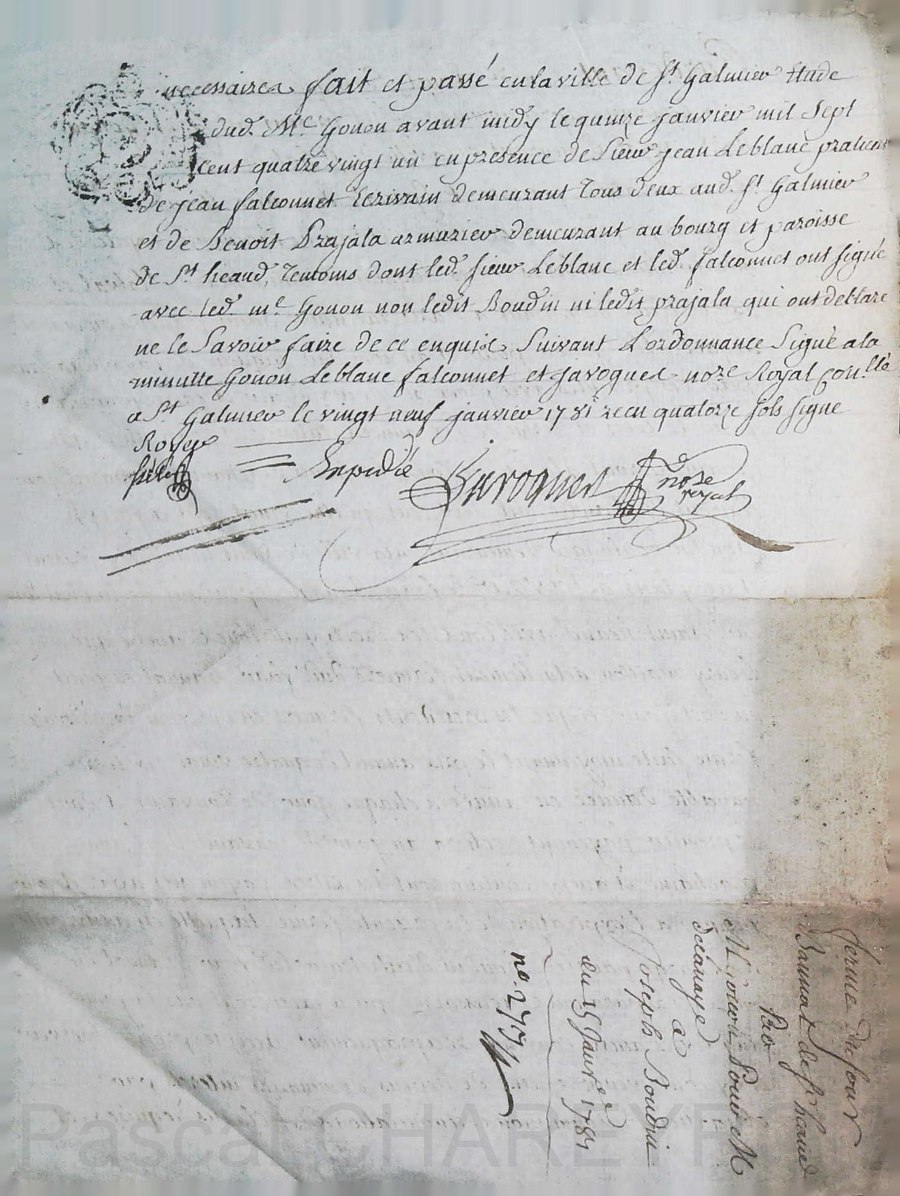 necessaires fait et passé en la ville de St. Galmier Etude
dud. Me. Gonon avant midy le quinze janvier mil Sept
cent quatre vingt un en presence de Sieur jean Leblanc praticien
de jean falconnet Ecrivain demeurant tous deux aud. St. Galmier
et de Benoit Prajala armurier demeurant au bourg et paroisse
de St. heand, temoins dont led. sieur Leblanc et led. falconnet ont signé
avec led. me. Gonon non ledit Boudin ni ledit prajala qui ont declaré
ne le savoir faire de ce enquis Suivant L'ordonnance Signé a la
minutte Gonon Leblanc falconnet et javoques nore. Royal Con.llé
a St. Galmier le vingt neuf janvier 1781 recu quatorze sols signe
Royer
Expedié
Javoques nore
royal
ferme du four
Bannal de St. heand
Par
decanaye
a
Joseph Boudin
du 15 Janvr. 1781
no. 277
Pascal CHAREYRON